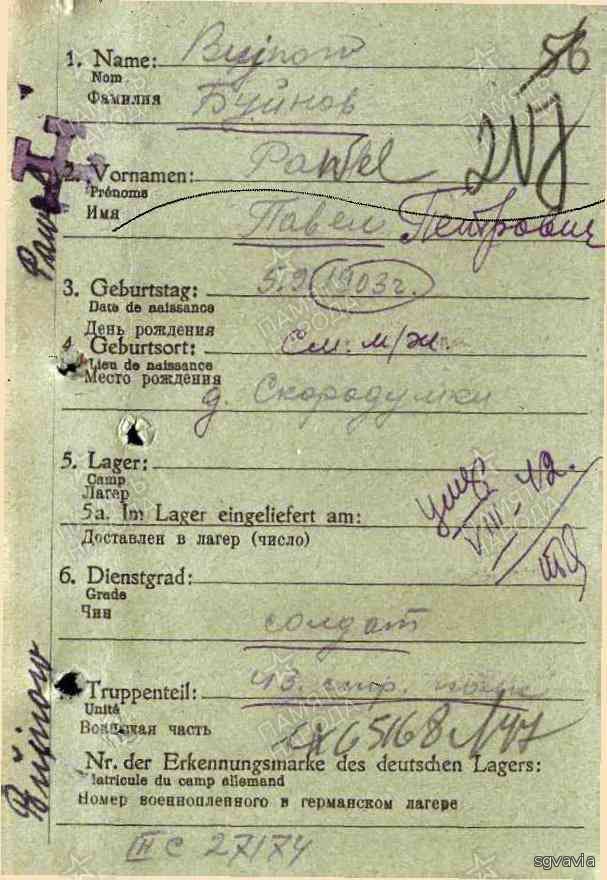 56
1. Name: Bujnow
Nom
Фамилия Буйнов
2. Vornamen: Pawel
Prénoms
Имя Павел Петрович
Pawel
3. Geburtstag: 5.9 1903 г.
Date de naissance
День рождения
4. Geburtsort: См. м/ж.
Lieu de naissance
Место рождения
д. Скородумки
5. Lager:
Camp
Лагер
5a. Im Lager eingeliefert am:
Доставлен в лагер (число)
VIII - 42.
6. Dienstgrad:
Grade
Чин
солдат
Bujnow
7. Truppenteil: стр. полк
Unité
Воинская часть
Nr. der Erkennungsmarke des deutschen Lagers:
Matricule du camp allemand
Номер военнопленного в германском лагере
III C 27174
sgvavia